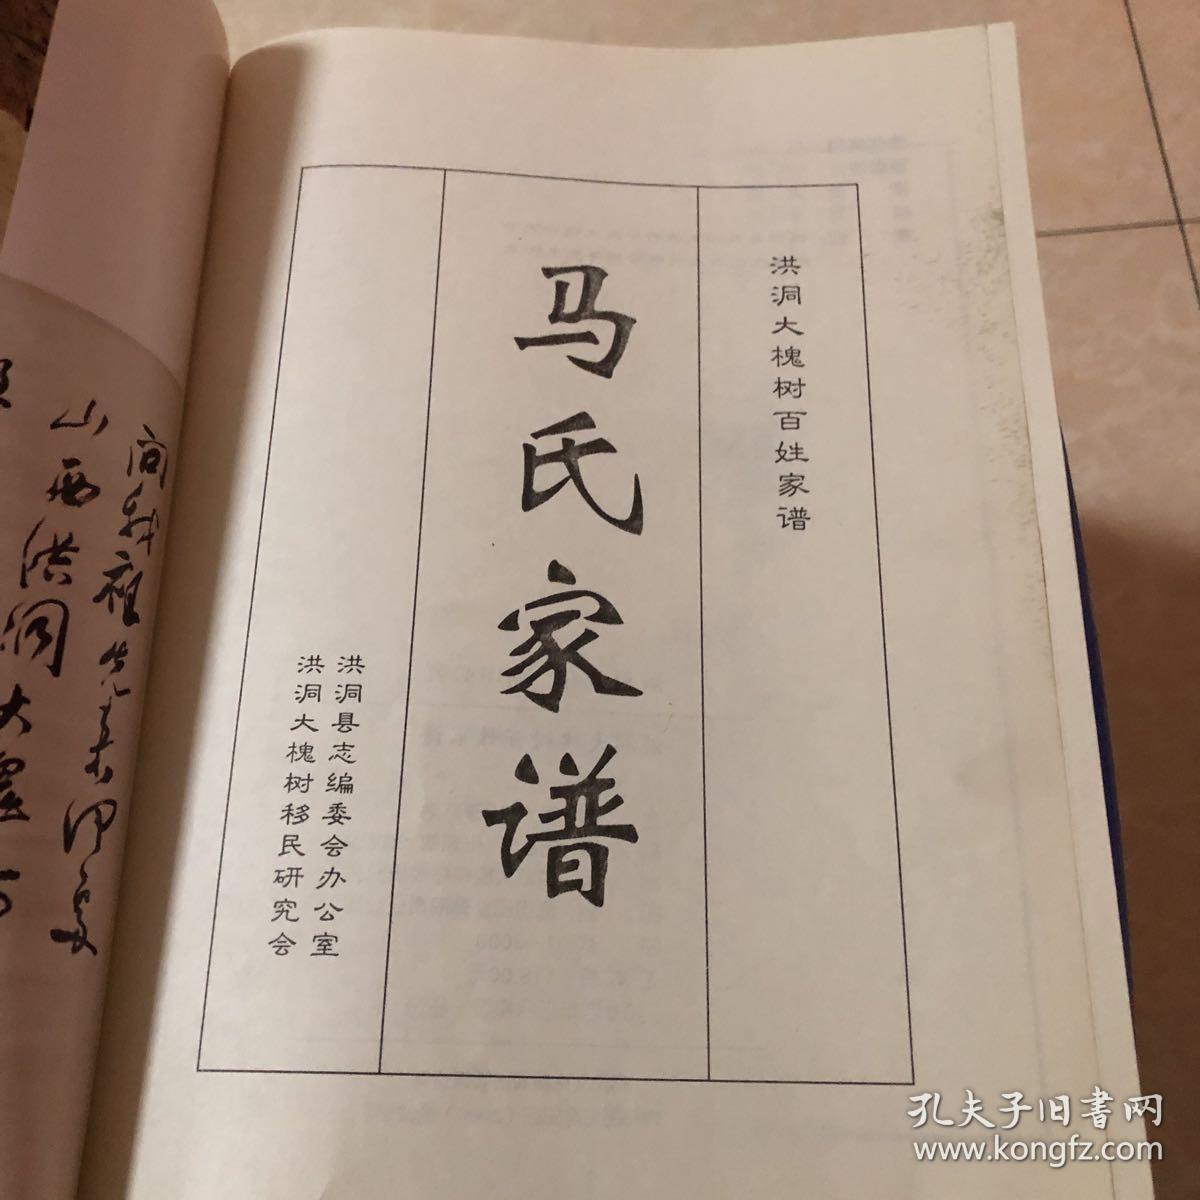 洪洞大槐树百姓家谱
马氏家谱
洪洞县志编委会办公室
洪洞大槐树移民研究会
问我祖先来何处
山西洪洞大槐
孔夫子旧书网
www.kongfz.com